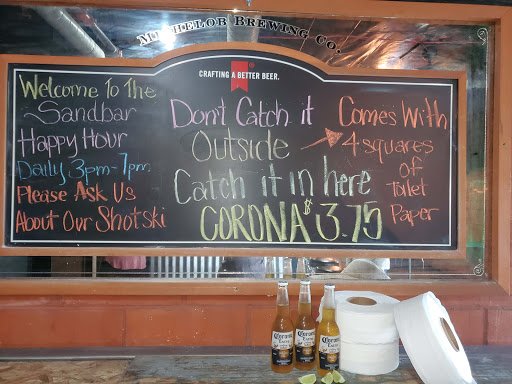 Michelob Brewing Co.
CRAFTING A BETTER BEER.
Welcome To The
Sandbar
Happy Hour
Daily 3pm-7pm
Please Ask Us
About Our Shotski
Don't Catch it
Outside
Catch it in here
CORONA $3.75
Comes With
4 squares
of
Toilet
Paper
Corona
Extra
Corona
Extra
Corona
Extra